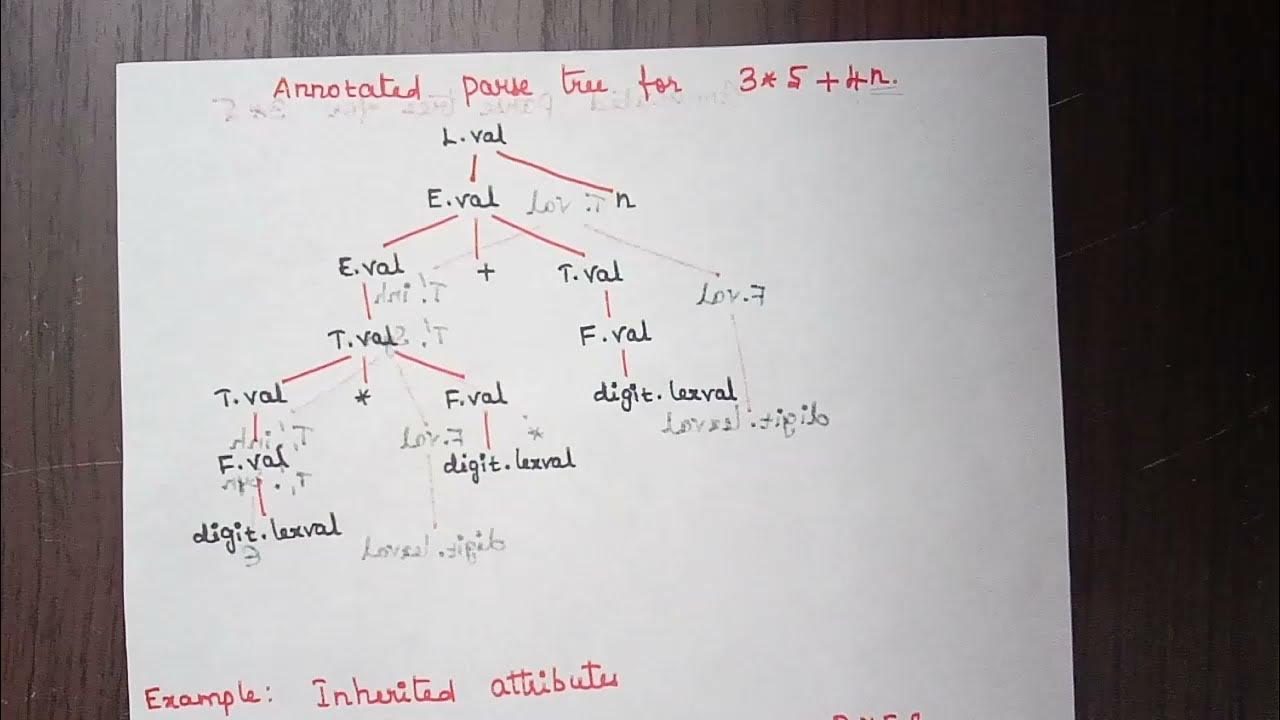 Annotated parse tree for 3*5+4n.
L.val
E.val n
E.val + T.val
T.val F.val
T.val * F.val digit.lexval
F.val digit.lexval
digit.lexval
Example: Inherited attributes